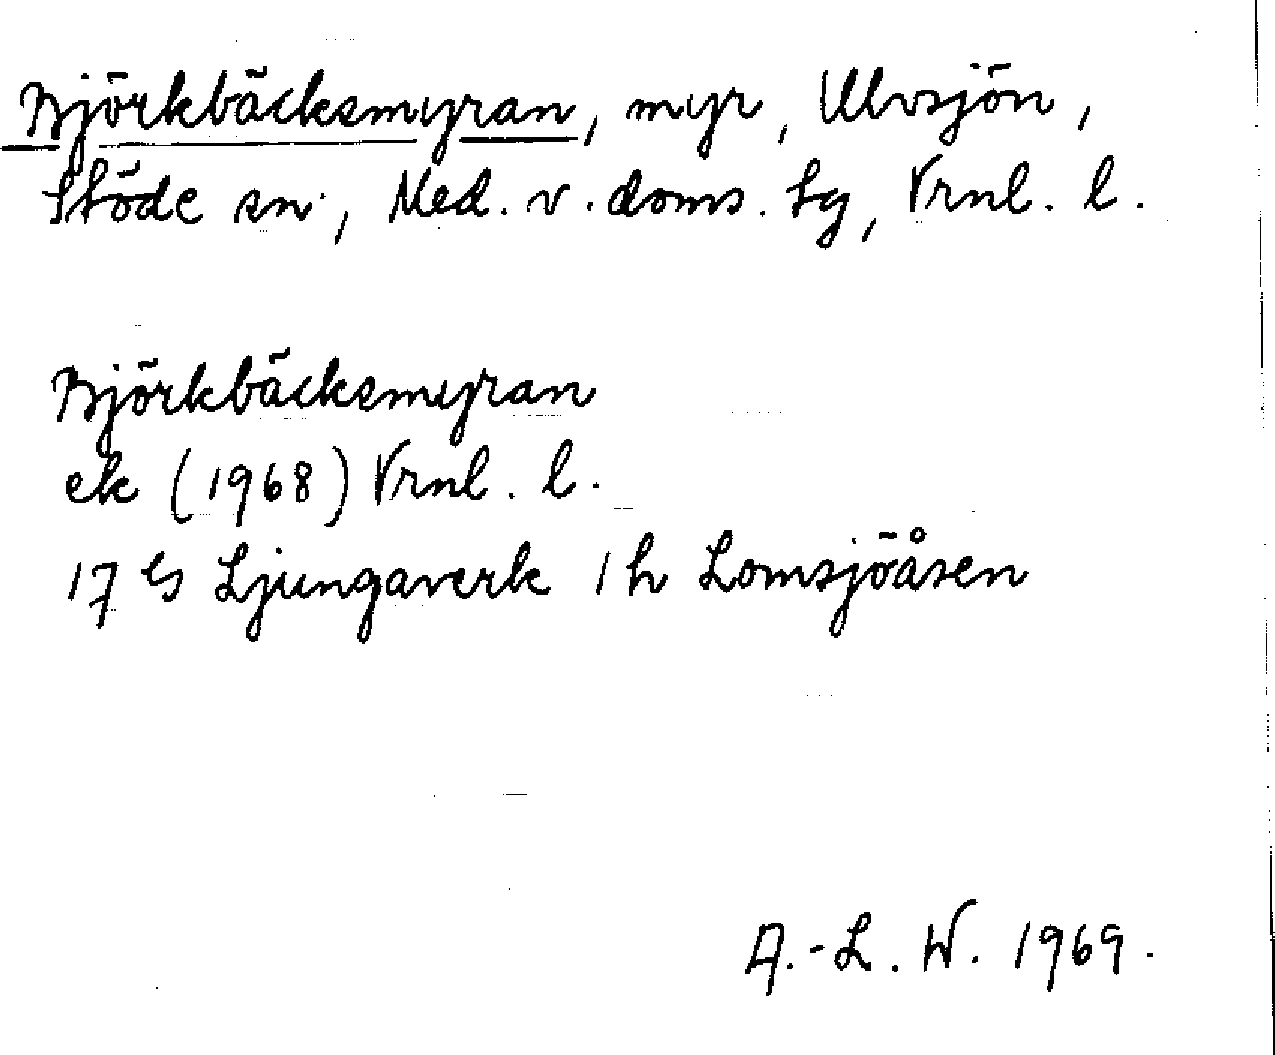 Björkbäcksmyran, myr, Ulvsjön,
Stöde sn, Med. v. doms. tg, Vrnl. l.
Björkbäcksmyran
ek (1968) Vrnl. l.
17 Ljungaverk 1h Lomsjöåsen
A.-L. W. 1969.